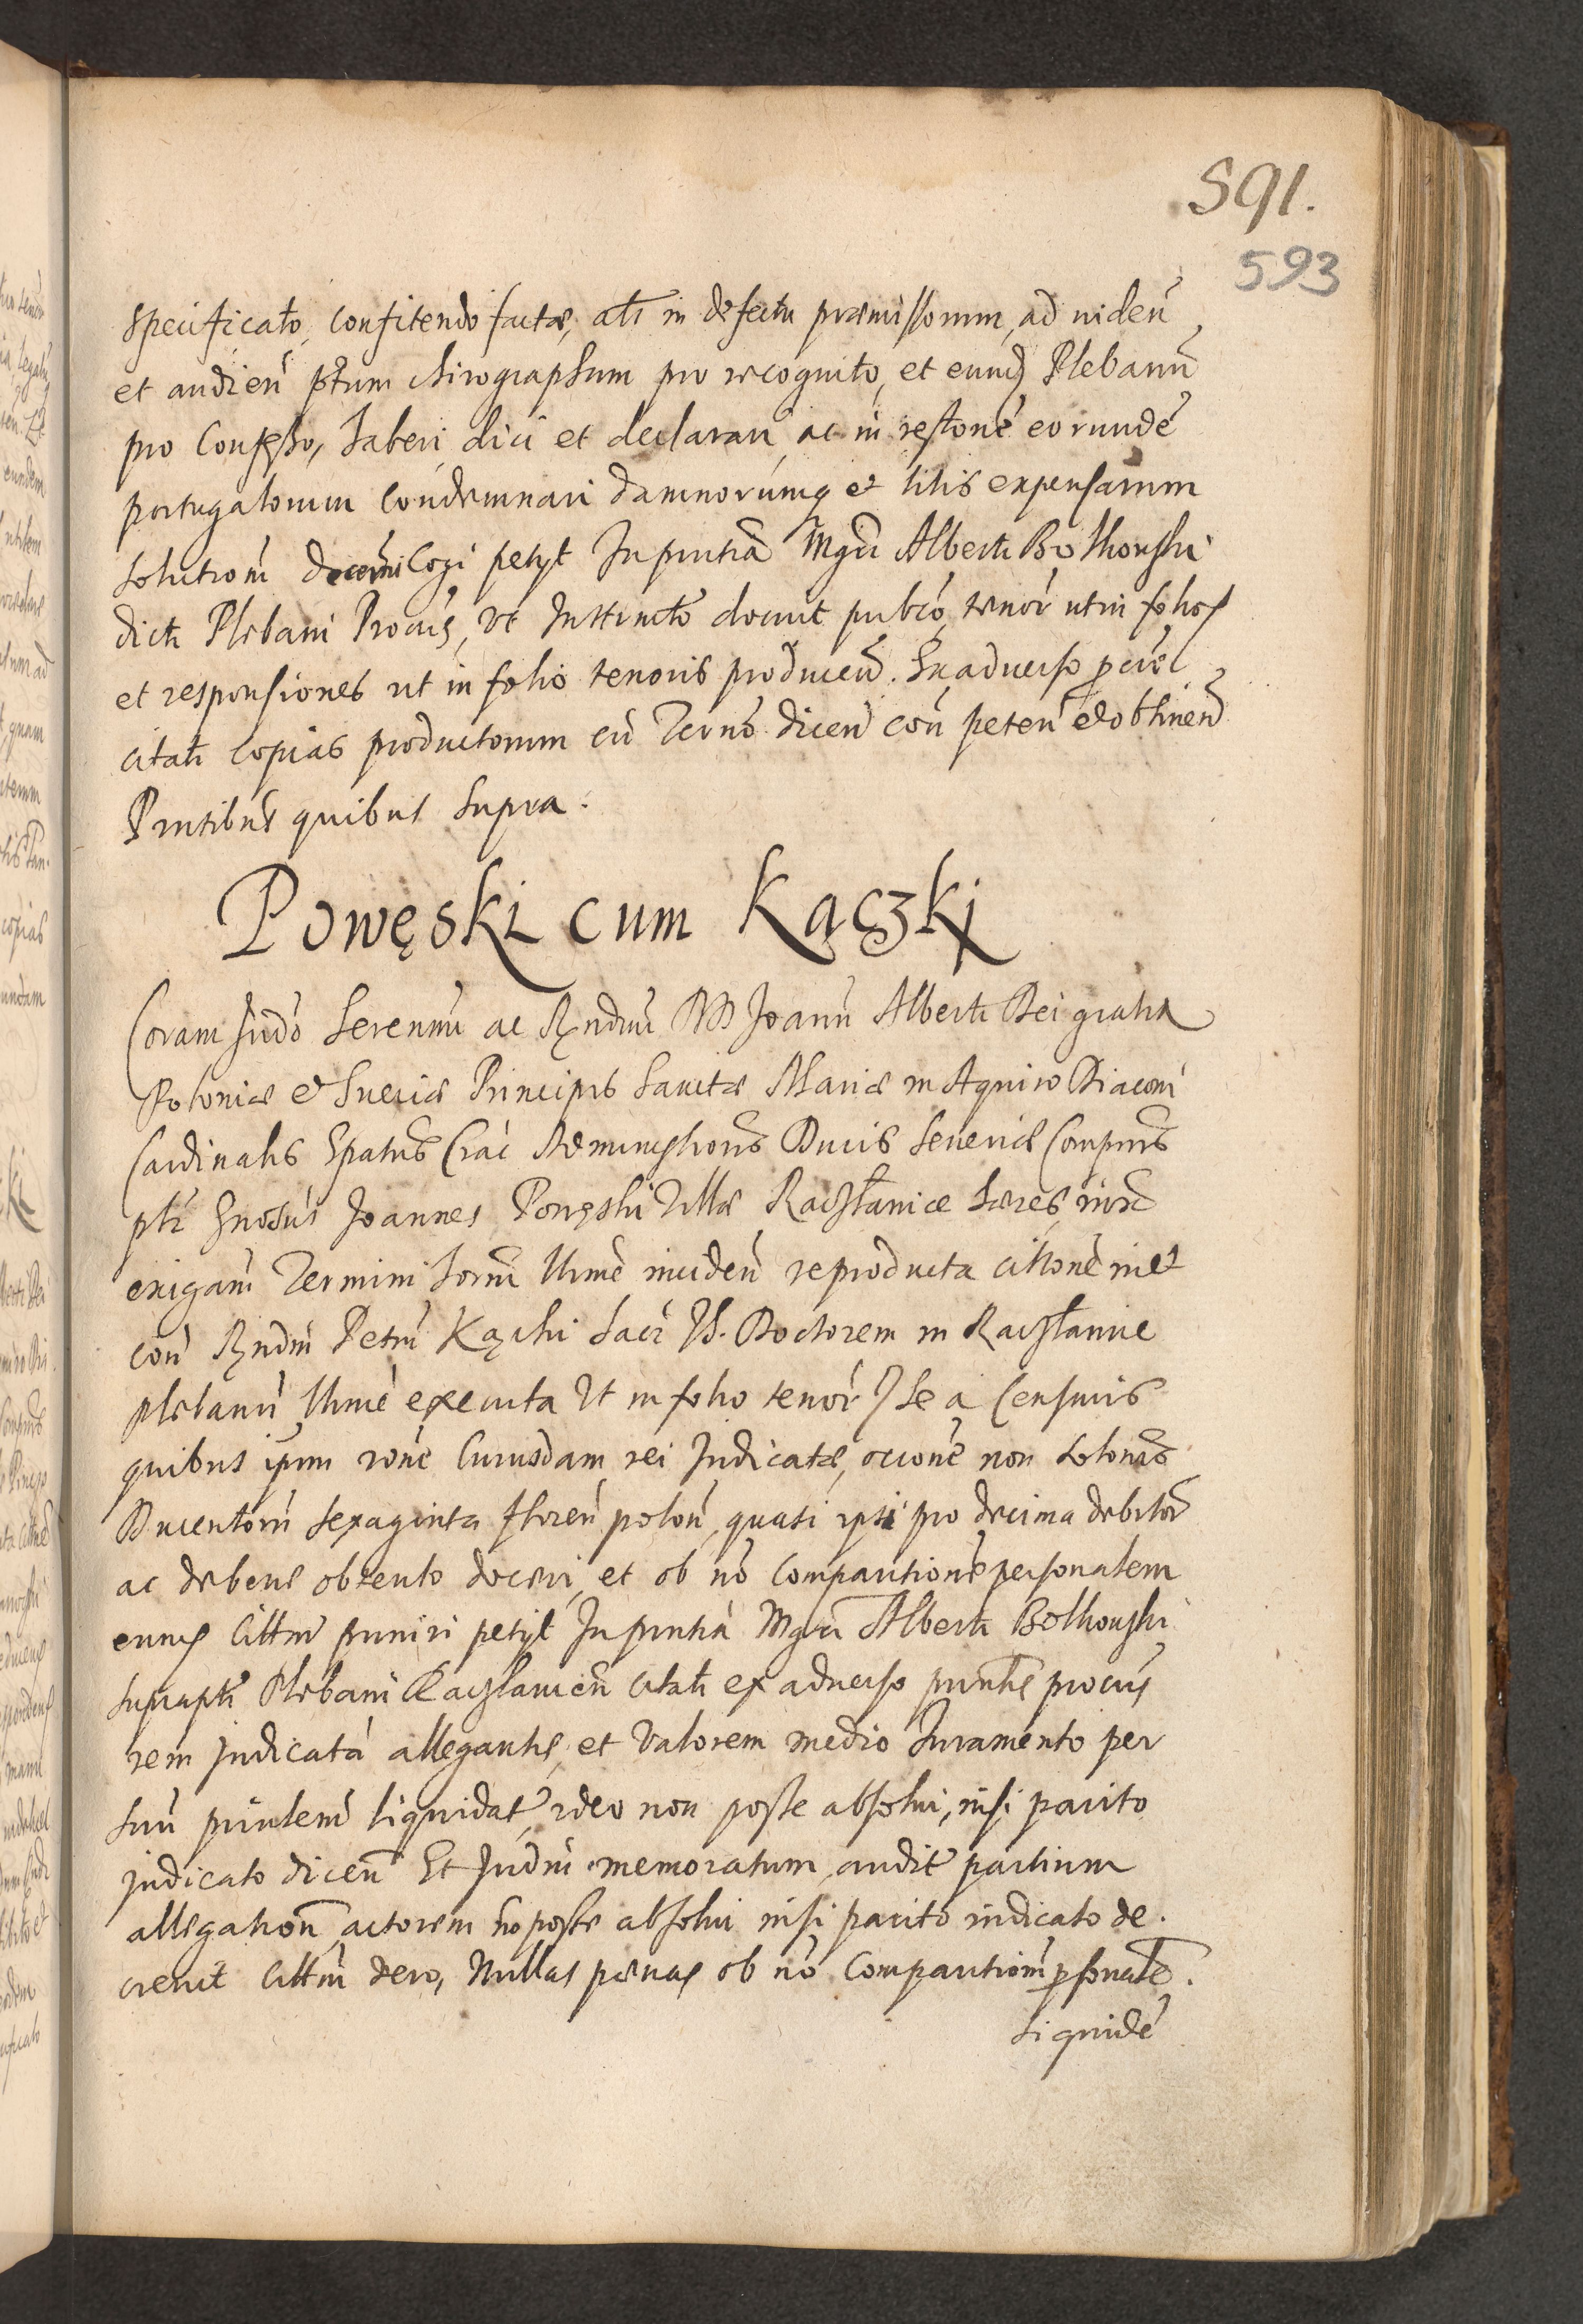 591.
593
specificato, confitendo factæ, als in defectu præmissorum, ad viden̄
et audien̄ pt̄um chirographum pro recognito, et eund Plebanū
pro Confesso, haberi dici et declarari, ac in restone eorundē
portugalorum Condemnari damnorūmq et litis expensarum
solutionī Cogi petyt In pntia Mgri Alberti Bolhouski
dicti Plebani Procuris, ut Instrumto docuit pubco, tenor ut in folio
et responsiones ut in folio tenoris producen̄. Ex adverso
citati Copias productorum cū Termo dicen̄ con̄ peten̄ et obtinen̄
Pntibus quibus supra.
Powęski cum Kączkj
Coram Judo Serenmi ac Rndmi DD Joann̄ Alberti Dei gratia
Poloniæ et Sueciæ Principis Sanctæ Mariæ in Aquiro Diaconi
Cardinalis Epatus Crac Administoris Ducis Severiæ Comprns
ptr Gnosus Joannes Pongski Villæ Racłaniæ hæres,
exigen̄ Termini horni ltime inciden̄ reproducta cittone in et
con̄ Rndm Petrū Kącski Sacr Th. Doctorem in Racłaniæ
plebanū ltime executa Ut in folio tenor) se a Censuris
quibus ipm rone Cuiusdam rei Judicatæ, occone non solonis
Ducentorū sexaginta floren̄ polon̄, quasi ipsi pro decima debitor
ac debens obtento doceri, et ob no Comparitione personalem
eung Cittm puniri petyt In pntia Mgri Alberti Bolhouski
supraptī Plebani Racłanien̄ citati ex adverso pntis procuris
rem judicatā allegantis, et valorem medio Juramento per
suū liquidat, ideo non posse absolvi, nisi parito
judicato dicen̄ Et Judm memoratum, audit partium
allegation̄ actorem no posse absolvi nisi parito iudicato de.
crevit Cittm vero, Nullas pænas ob no Comparitionī psonale.
siquidē